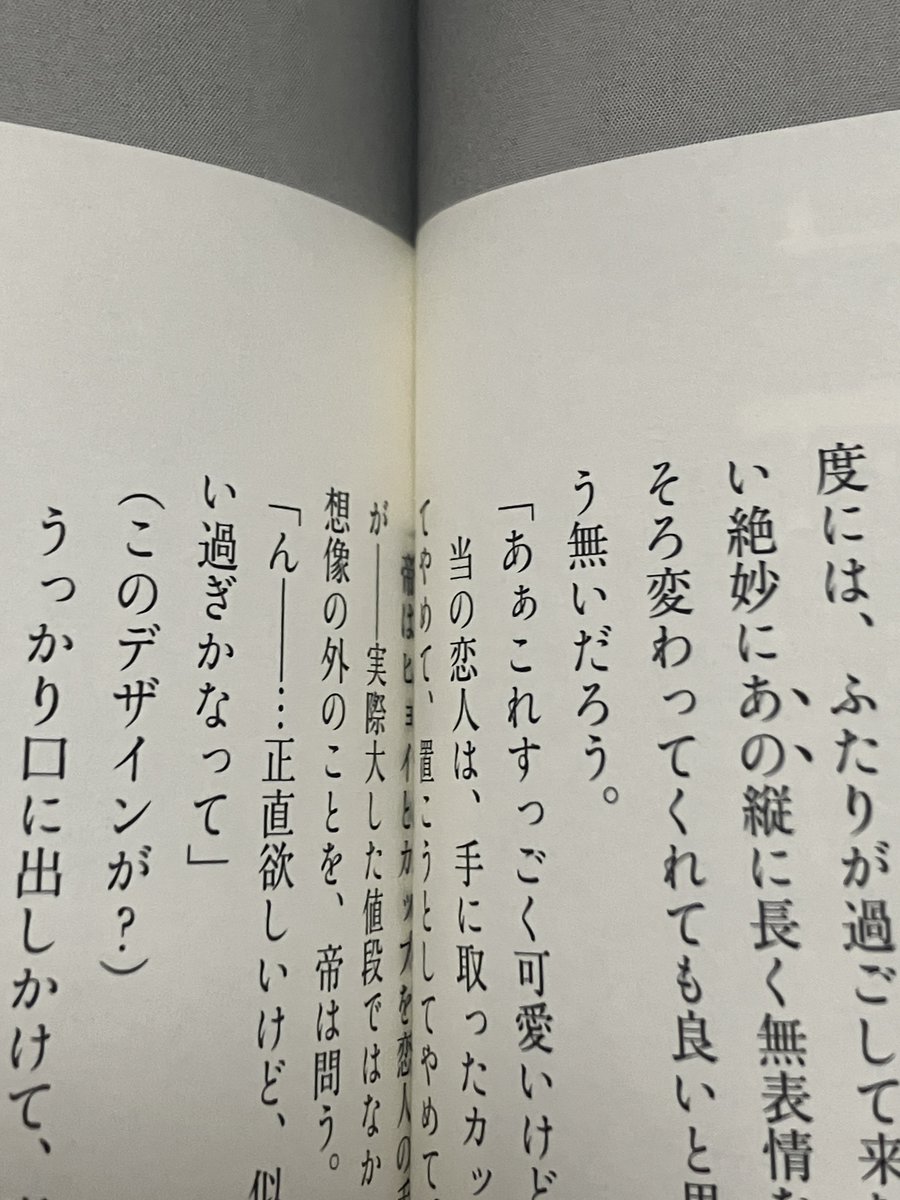 度には、ふたりが過ごして来
い絶妙にあの縦に長く無表情な
そろ変わってくれても良いと思
う無いだろう。
「あぁこれすっごく可愛いけど
当の恋人は、手に取ったカッ
てやめて、置こうとしてやめて、
帝はヒョイとカップを恋人の手
が――実際大した値段ではなか
想像の外のことを、帝は問う。
「ん――…正直欲しいけど、似
い過ぎかなって」
（このデザインが？）
うっかり口に出しかけて、